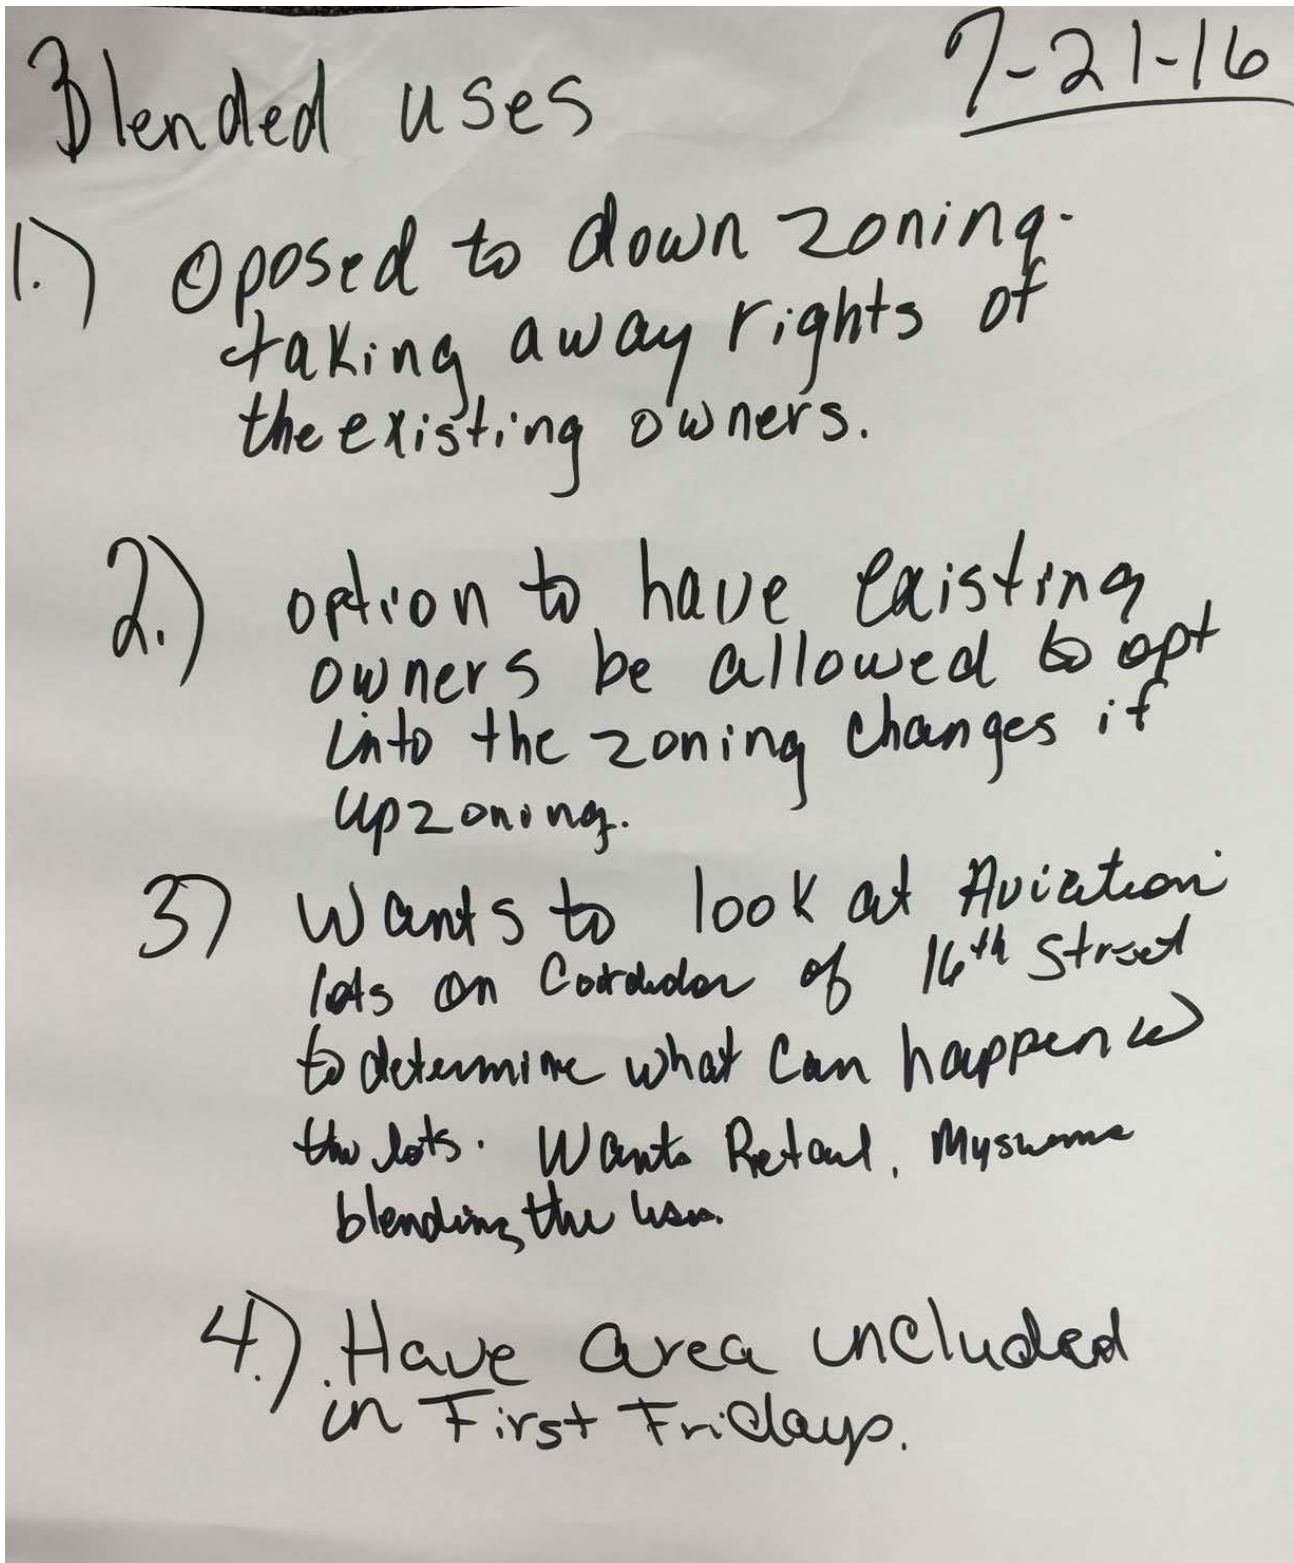 Blended uses
7-21-16
1.) Oposed to down zoning-
taking away rights of
the existing owners.
2.) option to have existing
owners be allowed to opt
into the zoning changes if
upzoning.
3) Wants to look at Aviation
lots on Corridor of 16th Street
to determine what can happen w
the lots. Wants Retail,
blending the use.
4.) Have area included
in First Fridays.